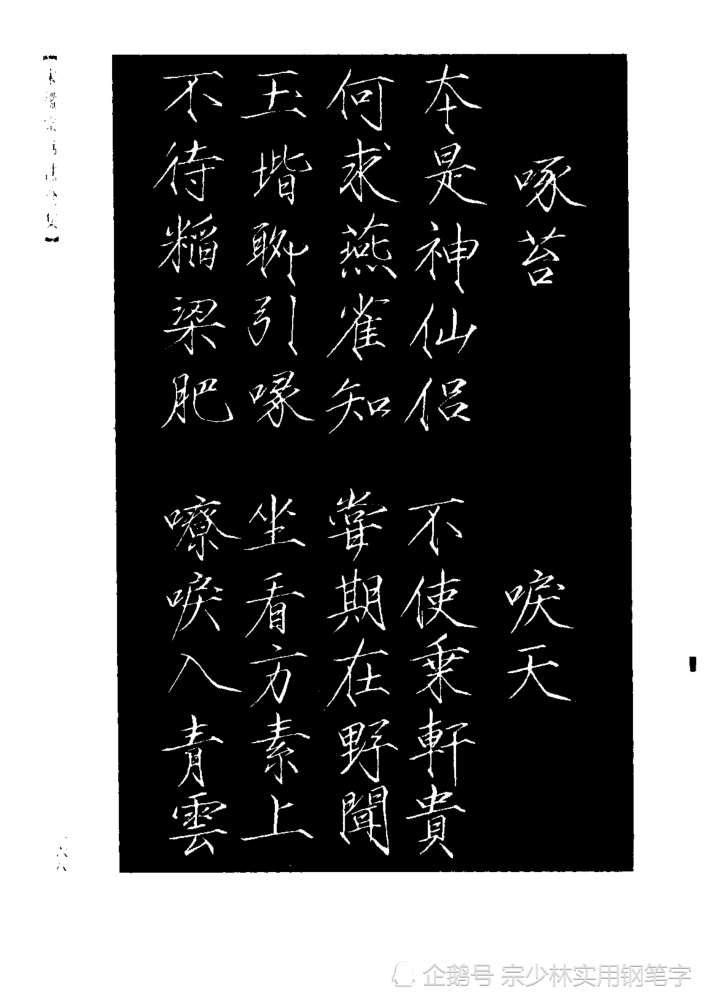 啄苔
本是神仙侶
何求燕雀知
玉堦聊引喙
不待稻梁肥
唳天
不使乘軒貴
嘗期在野聞
坐看方素上
嘹唳入青雲
企鹅号 宗少林实用钢笔字